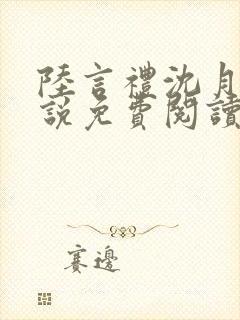 陸言禮沈月
說免費閱讀
賽邊